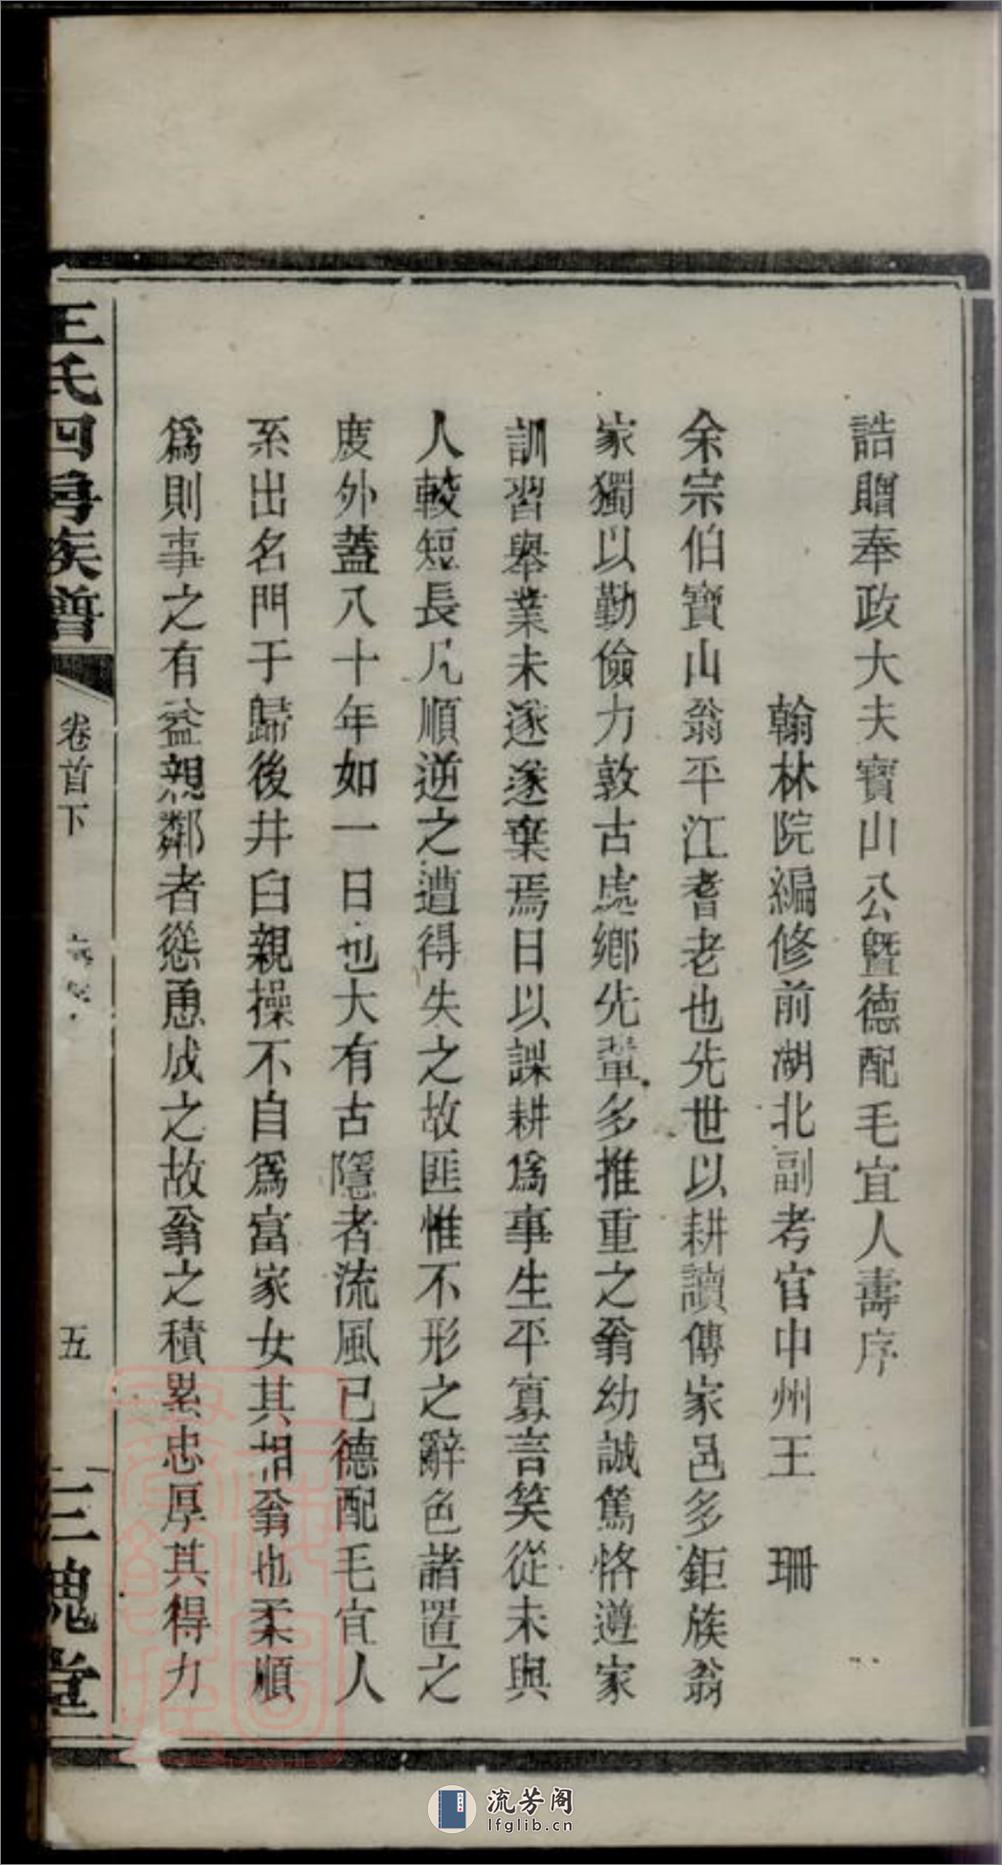 誥贈奉政大夫寳山公曁德配毛宜人壽序
翰林院編修前湖北副考官中州王　珊
余宗伯寶山翁平江耆老也先世以耕讀傳家邑多鉅族翁
家獨以勤儉力敦古處鄉先輩多推重之翁幼誠篤恪遵家
訓習舉業未遂遂棄焉日以課耕爲事生平寡言笑從未與
人較短長凡順逆之遭得失之故匪惟不形之辭色諸置之
度外蓋八十年如一日也大有古隱者流風已德配毛宜人
系出名門于歸後井臼親操不自爲富家女其相翁也柔順
爲則事之有益親鄰者慫恿成之故翁之積累忠厚其得力
王氏四房族譜
卷首下
五
三槐堂
流芳阁
lfglib.cn